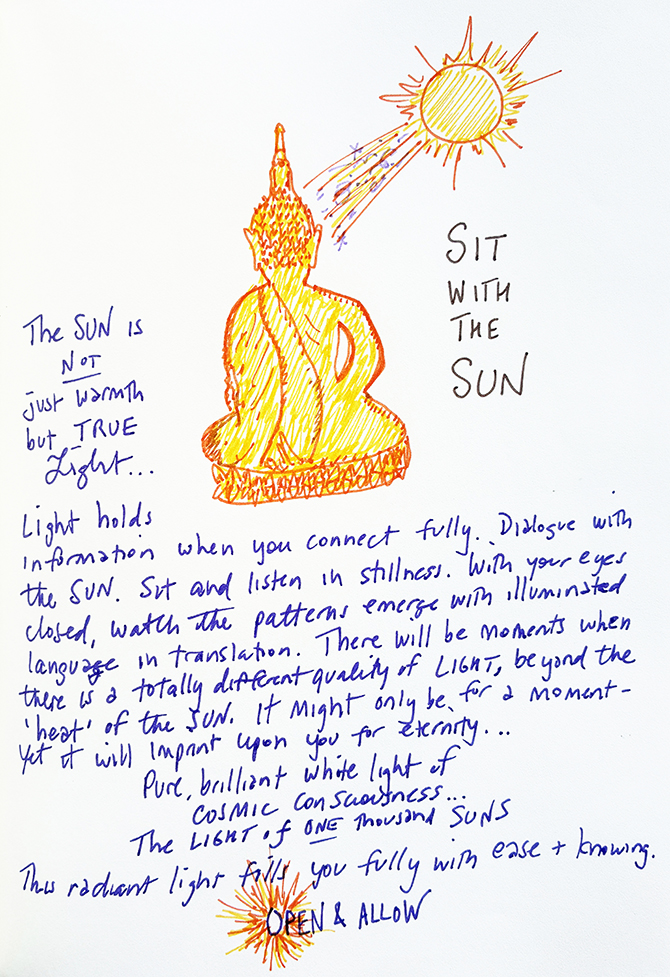 SIT
WITH
THE
SUN
The SUN is
NOT
just warmth
but TRUE
Light...
Light holds
information when you connect fully. Dialogue with
the SUN. Sit and listen in stillness. With your eyes
closed, watch the patterns emerge with illuminated
language in translation. There will be moments when
there is a totally different quality of LIGHT, beyond the
'heat' of the SUN. It might only be for a moment -
yet it will imprint upon you for eternity...
Pure, brilliant white light of
COSMIC Consciousness...
The LIGHT of ONE Thousand SUNS
This radiant light fills you fully with ease + knowing.
OPEN & ALLOW